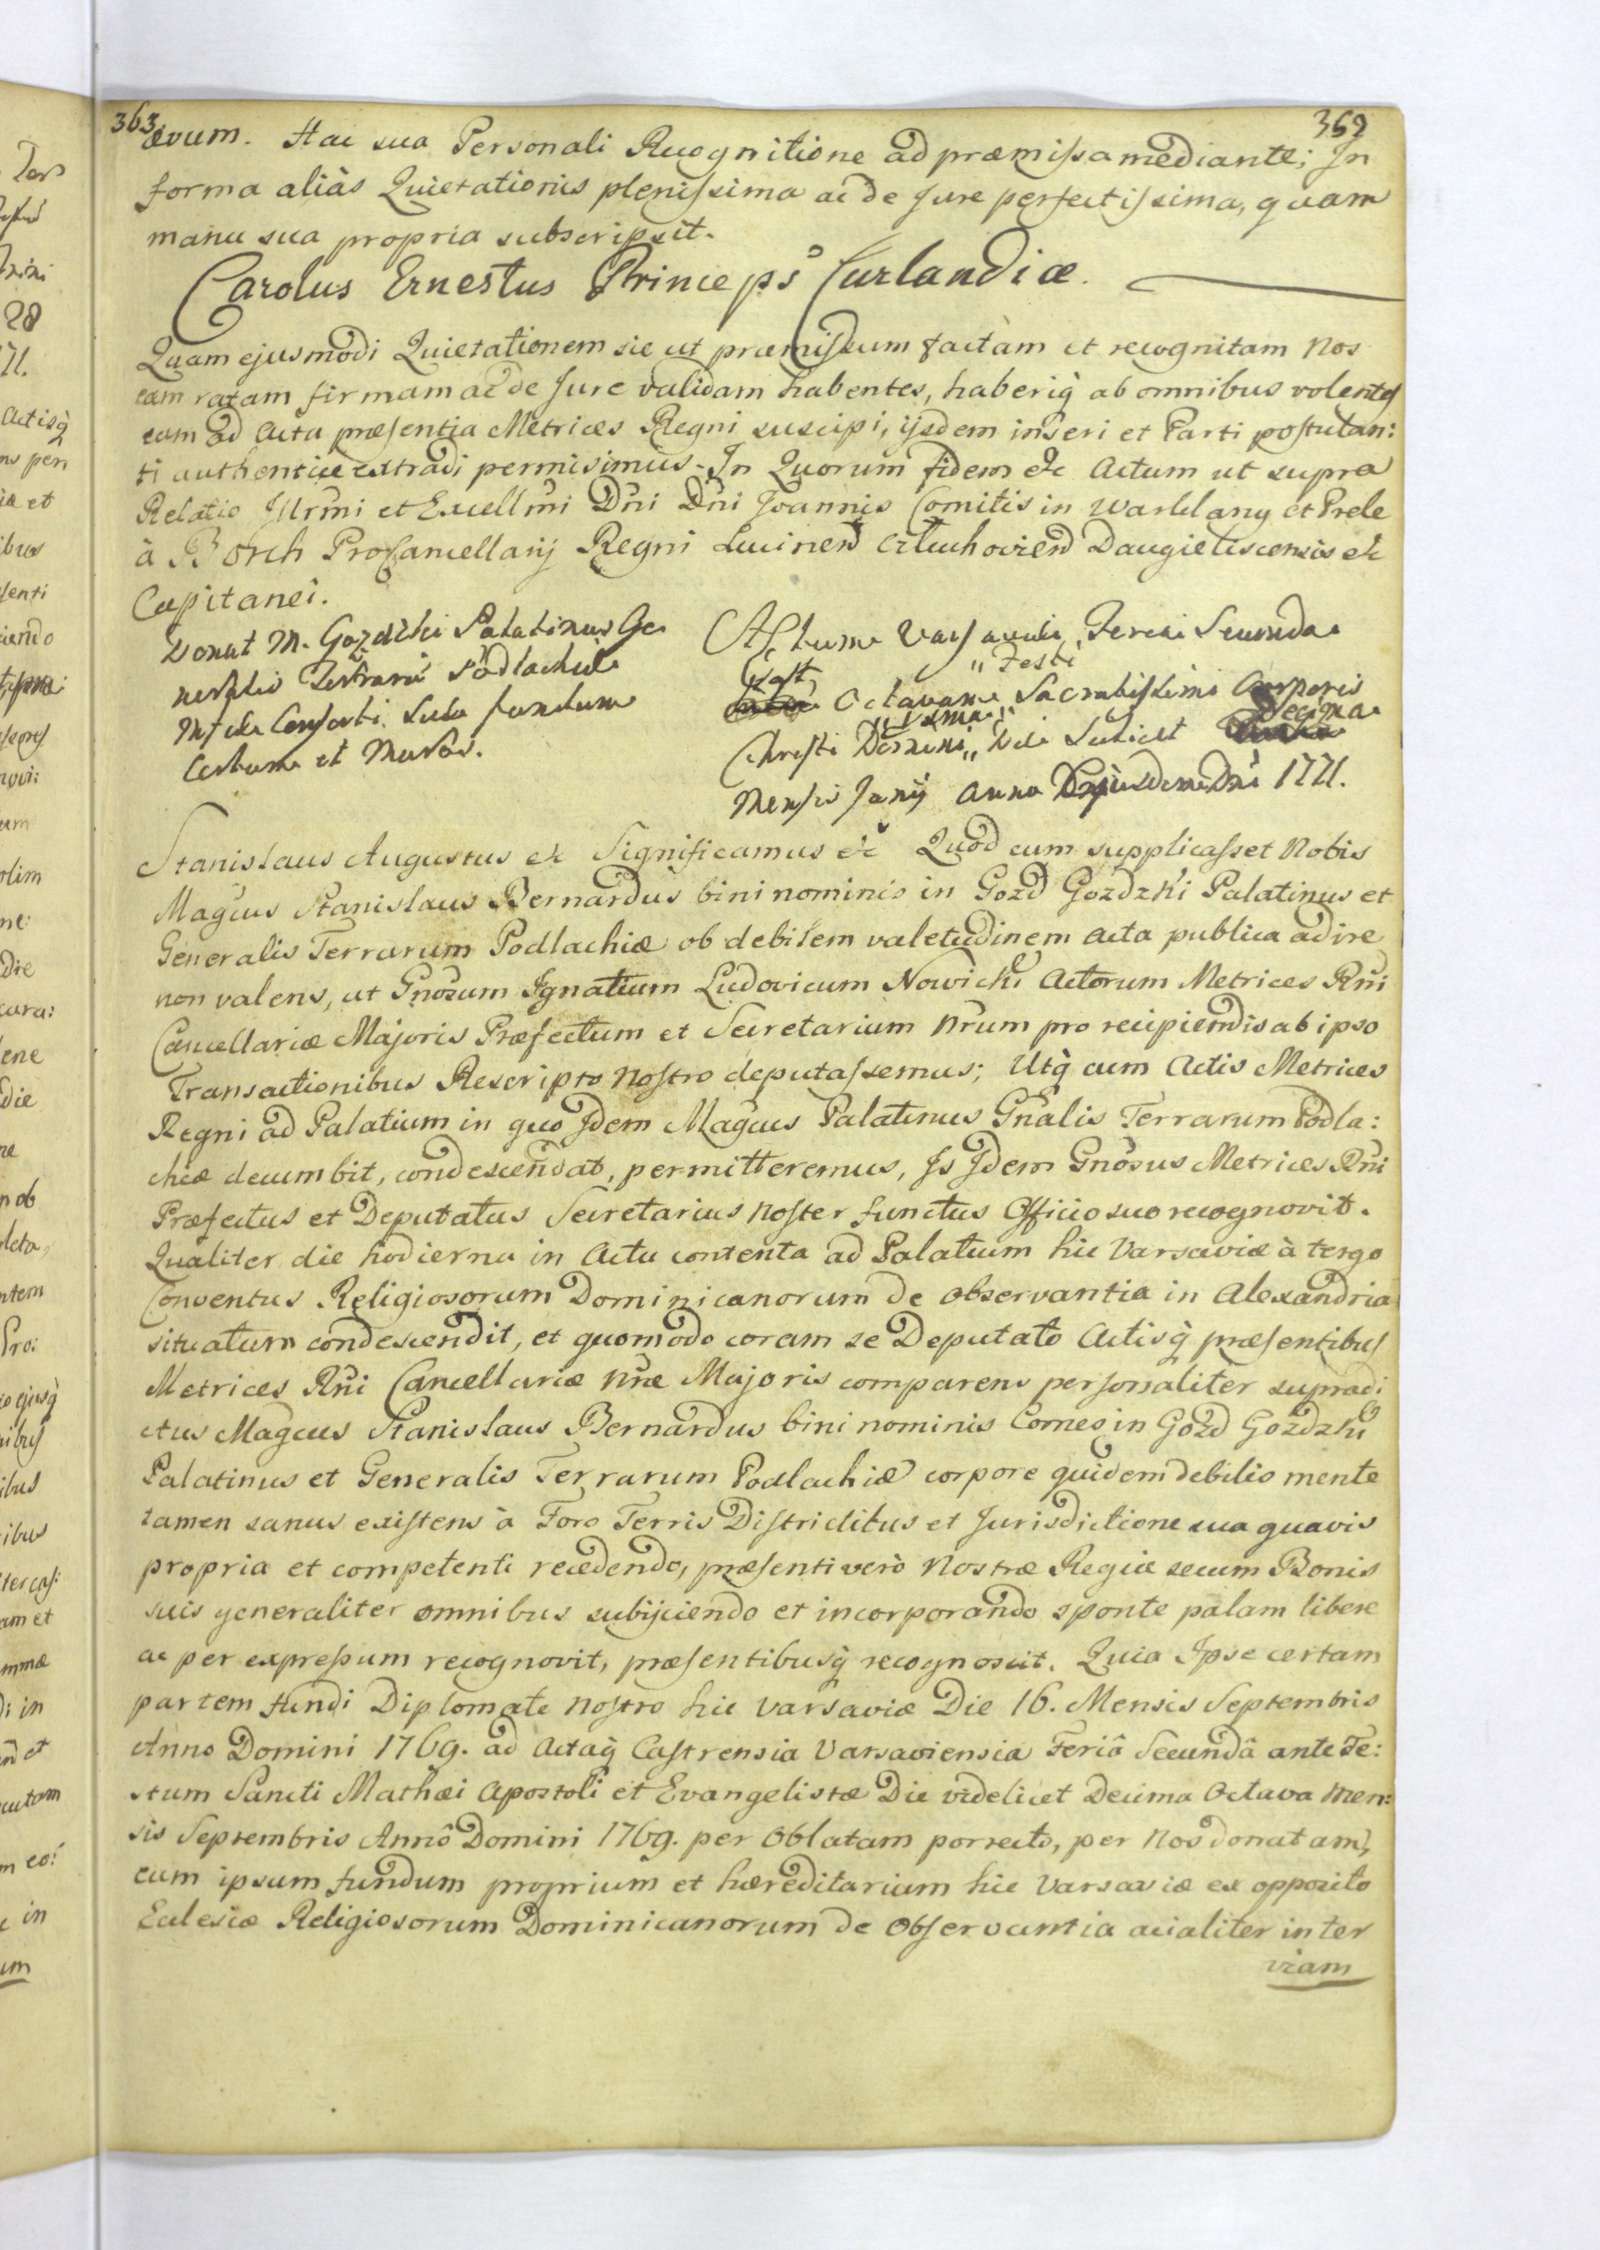 363 369
ævum. Hac sua Personali Recognitione ad præmissa mediante; In
forma aliàs Quietationis plenissima ac de Jure perfectissima, quam
manu sua propria subscripsit.
Carolus Ernestus Princeps Curlandiæ.
Quam ejusmodi Quietationem sic ut præmissum factam et recognitam Nos
eam ratam firmam ac de Jure validam habentes, haberiq̀ ab omnibus volentes
eam ad Acta præsentia Metrices Regni suscipi, ijsdem inseri et Parti postulan:
ti authentice extradi permisimus. In Quorum fidem &c Actum ut supra
Relatio Illrmi et Excellmi Dni Dni Joannis Comitis in Warkland et Prele
à Borch ProCancellarij Regni Lucinen Daugieliscensis &c
Capitanei.
Donat M. Gozdzki Palatinus Ge
neralis Terrarū Podlachiæ
Mfcæ Consorti Suæ fundum
certum et Muros.
Actum Varsaviæ Feria Secunda
post "Festi
Octavam Sacratissimi Corporis
Christi Domini "Xma" Die Scilicet Decima
Mensis Junij Anno Ejusdem Dni 1771.
Stanislaus Augustus &c Significamus &c Quod cum supplicasset Nobis
Magcus Stanislaus Bernardus bini nominis in Gozd Gozdzki Palatinus et
Generalis Terrarum Podlachiæ ob debilem valetudinem Acta publica adire
non valens, ut Gnosum Ignatium Ludovicum Nowicki Actorum Metrices Rni
Cancellariæ Majoris Præfectum et Secretarium Nrum pro recipiendis ab ipso
Transactionibus Rescripto Nostro deputassemus; Utq̀ cum Actis Metrices
Regni ad Palatium in quo Idem Magcus Palatinus Gnalis Terrarum Podla:
chiæ decumbit, condescendat, permitteremus, Is Idem Gnosus Metrices Rni
Præfectus et Deputatus Secretarius Noster functus Officio suo recognovit.
Qualiter die hodierna in Actu contenta ad Palatium hic Varsaviæ à tergo
Conventus Religiosorum Dominicanorum de Observantia in Alexandria
situatum condescendit, et quomodo coram se Deputato Actisq̀ præsentibus
Metrices Rni Cancellariæ Nræ Majoris comparens personaliter supradi
ctus Magcus Stanislaus Bernardus bini nominis Comes in Gozd Gozdzki
Palatinus et Generalis Terrarum Podlachiæ corpore quidem debilis mente
tamen sanus existens à Foro Terris Districtibus et Jurisdictione sua quavis
propria et competenti recedendo, præsenti verò Nostræ Regiæ secum Bonis
suis generaliter omnibus subijciendo et incorporando sponte palam libere
ac per expressum recognovit, præsentibusq̀ recognoscit. Quia Ipse certam
partem fundi Diplomate Nostro hic Varsaviæ Die 16. Mensis Septembris
Anno Domini 1769. ad Actaq̀ Castrensia Varsaviensia Feriâ Secundâ ante Fe:
stum Sancti Mathæi Apostoli et Evangelistæ Die videlicet Decima Octava Men:
sis Septembris Annô Domini 1769. per Oblatam porrecto, per Nos donatam,
cum ipsum fundum proprium et hæreditarium hic Varsaviæ ex opposito
Eclesiæ Religiosorum Dominicanorum de Observantia acialiter inter
viam